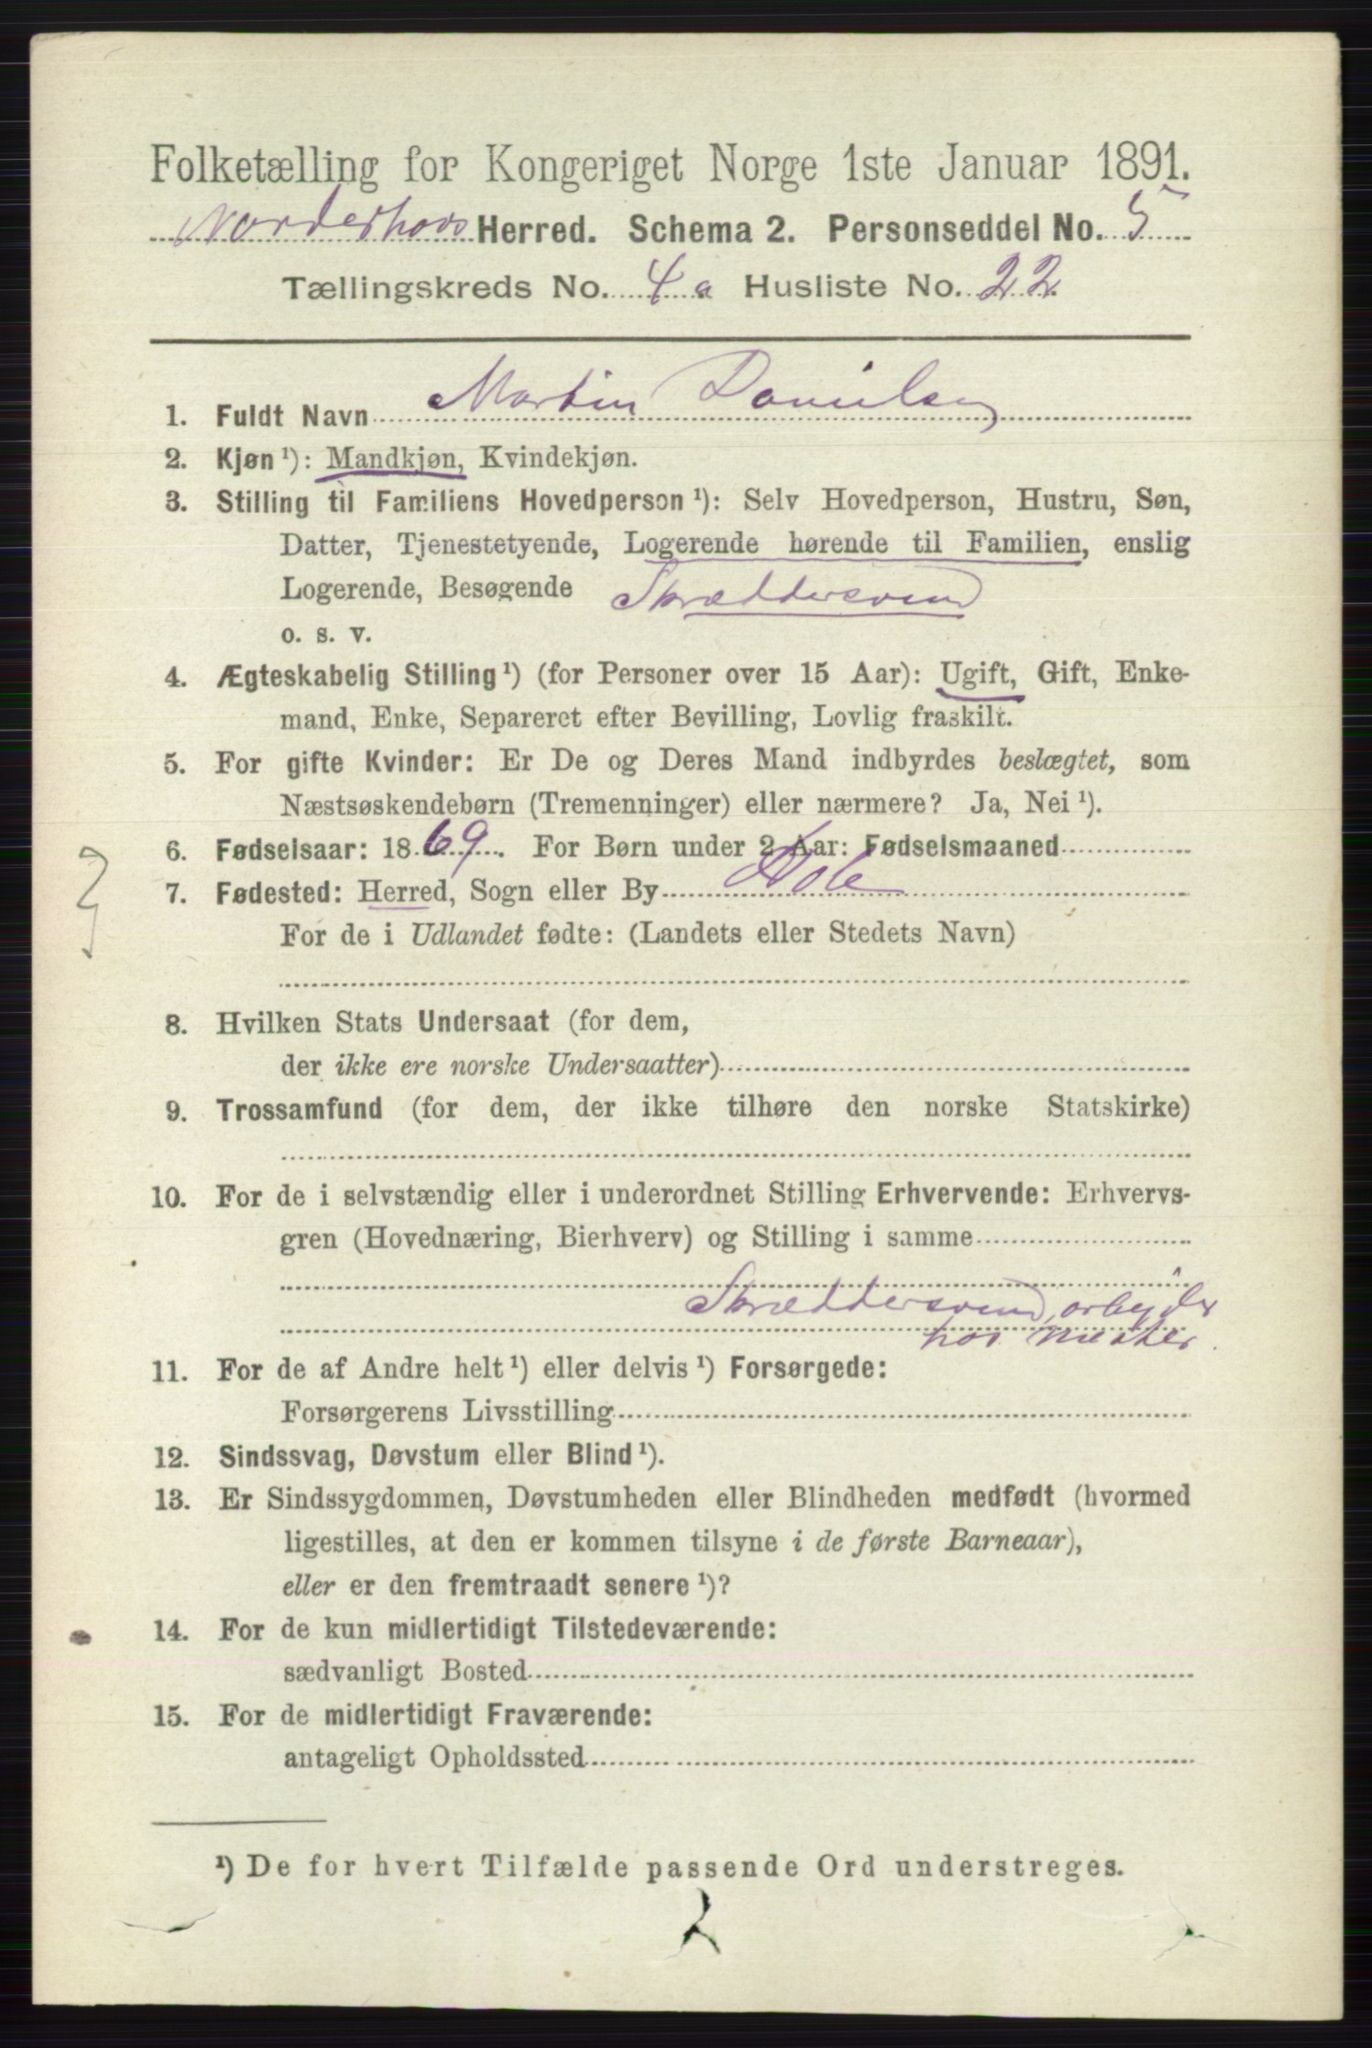 Folketælling for Kongeriget Norge 1ste Januar 1891.
Norderhovs Herred. Schema 2. Personseddel No. 5
Tællingskreds No. 4 a Husliste No. 22
1. Fuldt Navn Martin Danielsen
2. Kjøn ¹): Mandkjøn, Kvindekjøn.
3. Stilling til Familiens Hovedperson ¹): Selv Hovedperson, Hustru, Søn,
Datter, Tjenestetyende, Logerende hørende til Familien, enslig
Logerende, Besøgende Skræddersvend
o. s. v.
4. Ægteskabelig Stilling ¹) (for Personer over 15 Aar): Ugift, Gift, Enke-
mand, Enke, Separeret efter Bevilling, Lovlig fraskilt.
5. For gifte Kvinder: Er De og Deres Mand indbyrdes beslægtet, som
Næstsøskendebørn (Tremenninger) eller nærmere? Ja, Nei ¹).
6. Fødselsaar: 1869. For Børn under 2 Aar: Fødselsmaaned
7. Fødested: Herred, Sogn eller By Hole
For de i Udlandet fødte: (Landets eller Stedets Navn)
8. Hvilken Stats Undersaat (for dem,
der ikke ere norske Undersaatter)
9. Trossamfund (for dem, der ikke tilhøre den norske Statskirke)
10. For de i selvstændig eller i underordnet Stilling Erhvervende: Erhvervs-
gren (Hovednæring, Bierhverv) og Stilling i samme
Skræddersvend, arbejder
hos Mester.
11. For de af Andre helt ¹) eller delvis ¹) Forsørgede:
Forsørgerens Livsstilling
12. Sindssvag, Døvstum eller Blind ¹).
13. Er Sindssygdommen, Døvstumheden eller Blindheden medfødt (hvormed
ligestilles, at den er kommen tilsyne i de første Barneaar),
eller er den fremtraadt senere ¹)?
14. For de kun midlertidigt Tilstedeværende:
sædvanligt Bosted
15. For de midlertidigt Fraværende:
antageligt Opholdssted
¹) De for hvert Tilfælde passende Ord understreges.